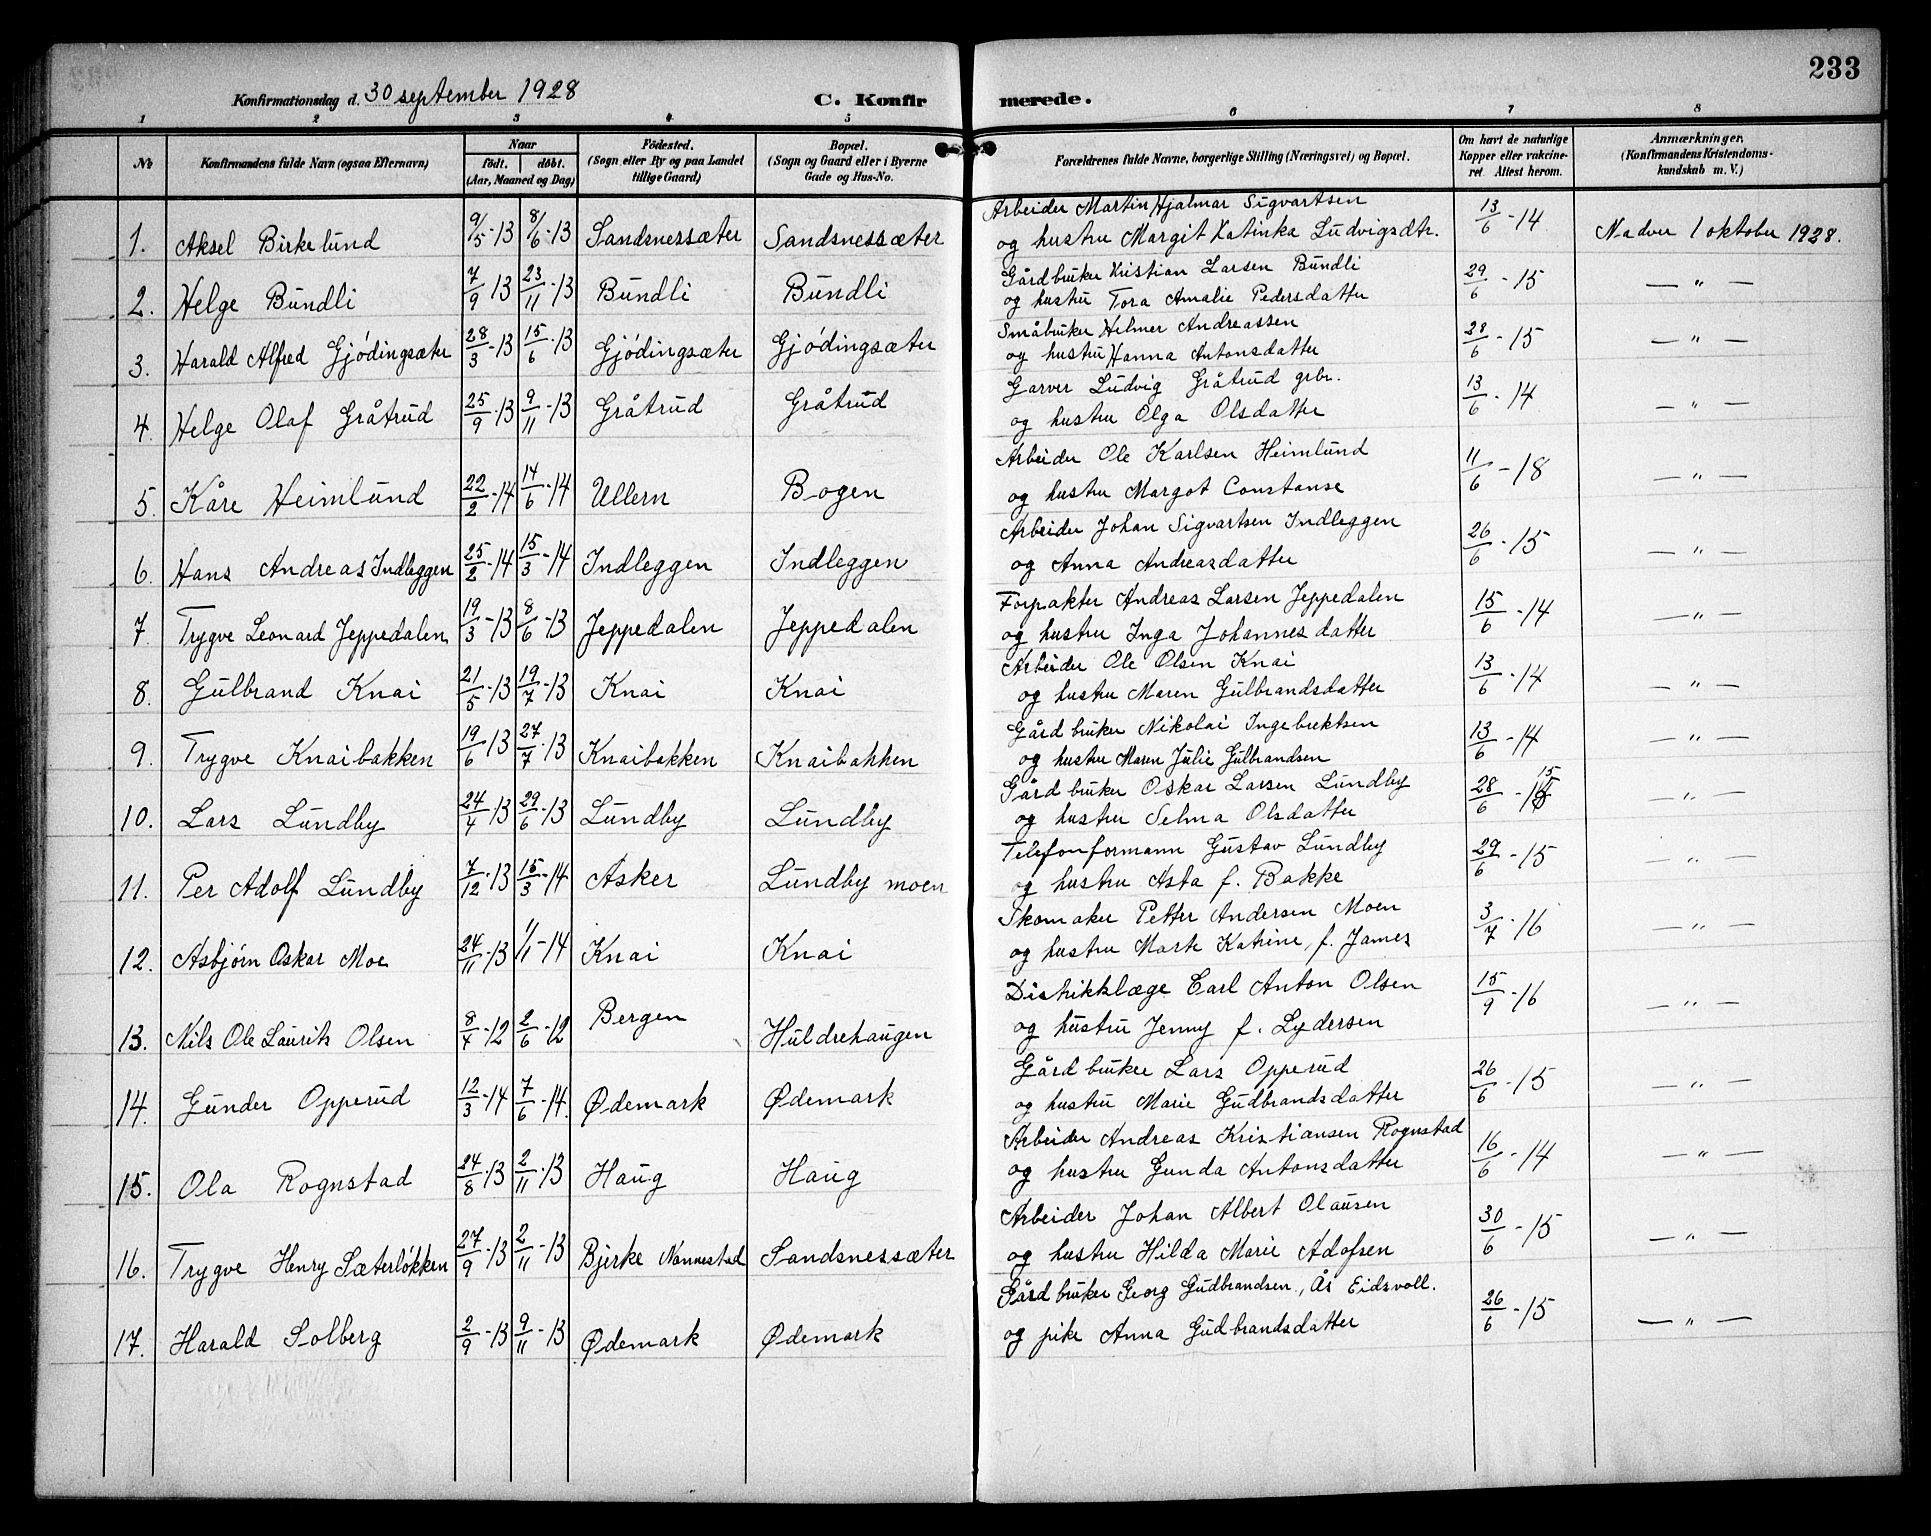 233
Konfirmationsdag d. 30 september 1928 C. Konfirmerede.
1 2 3 4 5 6 7 8
№ Konfirmandens fulde Navn (ogsaa Efternavn) Naar født. døbt. (Aar, Maaned og Dag) Fødested. (Sogn eller By og paa Landet tillige Gaard) Bopæl. (Sogn og Gaard eller i Byerne Gade og Hus-No. Forældrenes fulde Navne, borgerlige Stilling (Næringsvei) og Bopæl. Om havt de naturlige Kopper eller vakcineret. Attest herom. Anmærkninger, (Konfirmandens Kristendomskundskab m. V.)
1. Aksel Birkelund 9/5-13 8/6-13 Sandsnessæter Sandsnessæter Arbeider Martin Hjalmar Sigvartsen og hustru Margit Katinka Ludvigsdtr. 13/6-14 Nadver 1 oktober 1928.
2. Helge Bundli 7/9 13 23/11-13 Bundli Bundli Gårdbruker Kristian Larsen Bundli og hustru Tora Amalie Pedersdatter 29/6-15 — " —
3. Harald Alfred Gjødingsæter 28/3-13 15/6-13 Gjødingsæter Gjødingsæter Småbruker Helmer Andreassen og hustru Hanna Antonsdatter 28/6-15 — " —
4. Helge Olaf Gråtrud 25/9-13 9/11-13 Gråtrud Gråtrud Garver Ludvig Gråtrud grbr. og hustru Olga Olsdatter 13/6-14 — " —
5. Kåre Heimlund 22/2-14 14/6-14 Ullern Bogen Arbeider Ole Karlsen Heimlund og hustru Margot Constanse 11/6-18 — " —
6. Hans Andreas Indleggen 25/2-14 15/3-14 Indleggen Indleggen Arbeider Johan Sigvartsen Indleggen og Anna Andreasdatter 26/6-15 — " —
7 Trygve Leonard Jeppedalen 19/3-13 8/6-13 Jeppedalen Jeppedalen Forpakter Andreas Larsen Jeppedalen og hustru Inga Johannesdatter 15/6-14 — " —
8. Gulbrand Knai 21/5-13 19/7-13 Knai Knai Arbeider Ole Olsen Knai og hustru Maren Gulbrandsdatter 13/6-14 — " —
9. Trygve Knaibakken 19/6-13 27/7-13 Knaibakken Knaibakken Gårdbruker Nikolai Ingebrektsen og hustru Maren Julie Gulbrandsen 13/6-14 — " —
10. Lars Lundby 24/4-13 29/6-13 Lundby Lundby Gårdbruker Oskar Larsen Lundby og hustru Selma Olsdatter 28/6-15 — " —
11. Per Adolf Lundby 7/12-13 15/3-14 Asker Lundby moen Telefonformann Gustav Lundby og hustru Asta f. Bakke 29/6-15 — " —
12. Asbjørn Oskar Moe 24/11-13 1/1-14 Knai Knai Skomaker Petter Andersen Moen og hustru Katrine, f. James 3/7-16 — " —
13. Nils Ole Laurits Olsen 8/4-12 2/6-12 Bergen Huldrehaugen Distriktlæge Carl Anton Olsen og hustru Jenny f. Lydersen 15/9-16 — " —
14. Gunder Opperud 12/3-14 7/6-14. Ødemark Ødemark Gårdbruker Lars Opperud og hustru Marie Gudbrandsdatter 26/6-15 — " —
15. Ola Rognstad 24/8-13 2/11-13 Haug Haug Arbeider Andreas Kristiansen Rognstad og hustru Gunda Antonsdatter 16/6-14 — " —
16. Trygve Henry Sæterløkken 27/9-13 2/11-13 Bjerke Nannestad Sandsnessæter Arbeider Johan Albert Olausen og hustru Hilda Marie Adofsen 30/6-15 — " —
17. Harald Solberg 2/9-13 9/11-13 Ødemark Ødemark Gårdbruker Georg Gudbrandsen, Ås Eidsvoll. og pike Anna Gudbrandsdatter 26/6-15 — " —